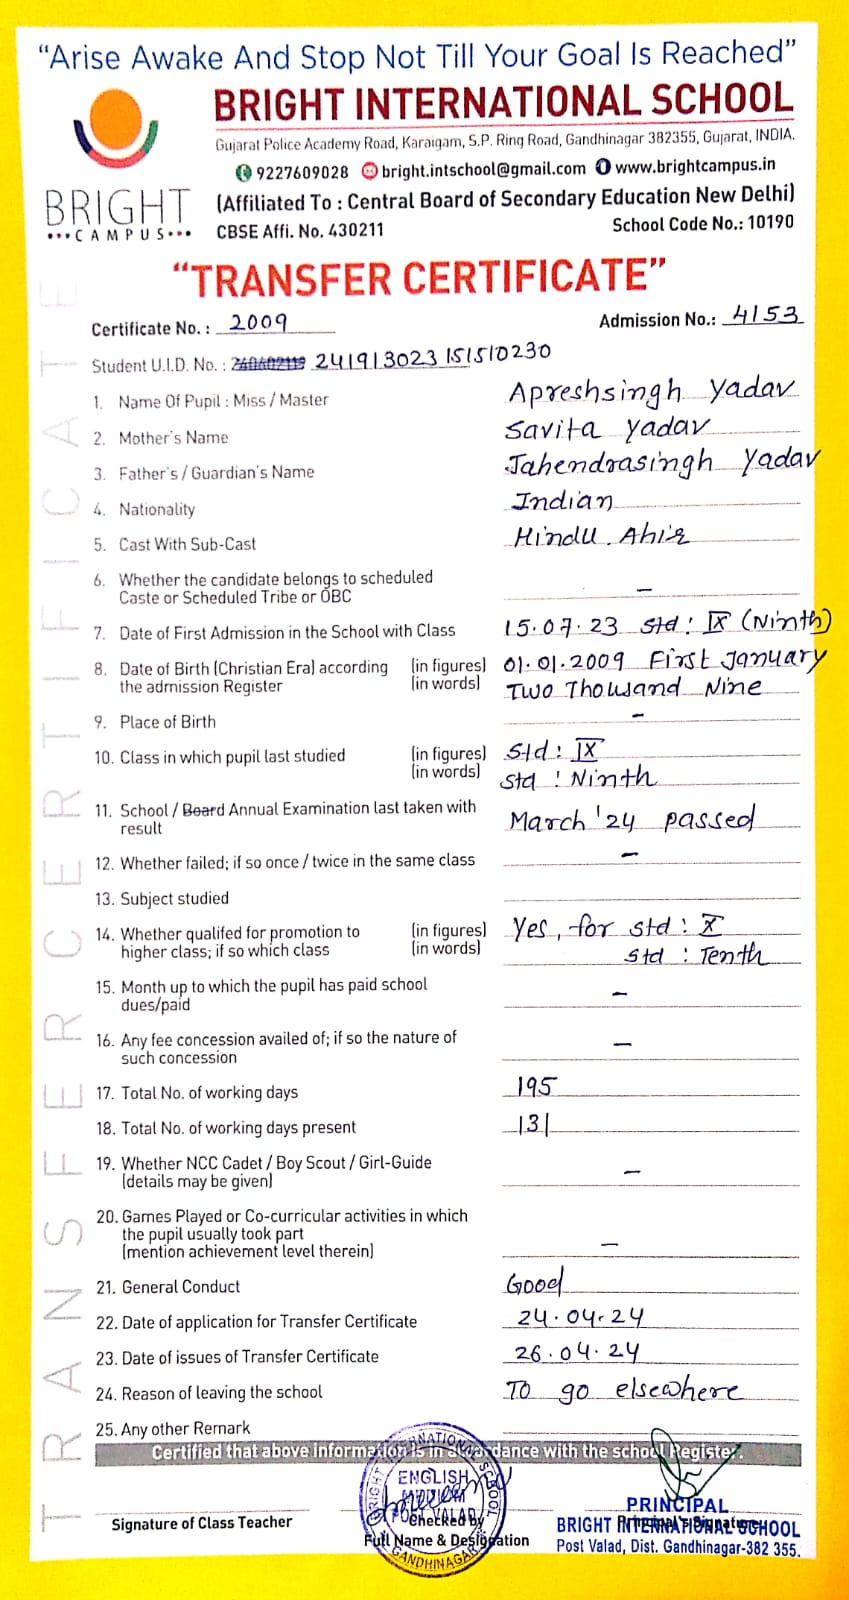 “Arise Awake And Stop Not Till Your Goal Is Reached”
BRIGHT INTERNATIONAL SCHOOL
Gujarat Police Academy Road, Karaigam, S.P. Ring Road, Gandhinagar 382355, Gujarat, INDIA.
9227609028 bright.intschool@gmail.com www.brightcampus.in
BRIGHT
•••CAMPUS•••
(Affiliated To : Central Board of Secondary Education New Delhi)
CBSE Affi. No. 430211 School Code No.: 10190
“TRANSFER CERTIFICATE”
Certificate No. : 2009 Admission No.: 4153
Student U.I.D. No. : 241913023151510230
1. Name Of Pupil : Miss / Master Apreshsingh Yadav
2. Mother's Name Savita Yadav
3. Father's / Guardian's Name Jahendrasingh Yadav
4. Nationality Indian
5. Cast With Sub-Cast Hindu. Ahir
6. Whether the candidate belongs to scheduled
Caste or Scheduled Tribe or OBC –
7. Date of First Admission in the School with Class 15.07.23 Std: IX (Ninth)
8. Date of Birth (Christian Era) according (in figures) 01.01.2009 First January
the admission Register (in words) Two Thousand Nine
9. Place of Birth –
10. Class in which pupil last studied (in figures) Std: IX
(in words) Std : Ninth
11. School / Board Annual Examination last taken with
result March '24 passed
12. Whether failed; if so once / twice in the same class –
13. Subject studied
14. Whether qualifed for promotion to (in figures) Yes, for std : X
higher class; if so which class (in words) std : Tenth
15. Month up to which the pupil has paid school
dues/paid –
16. Any fee concession availed of; if so the nature of
such concession –
17. Total No. of working days 195
18. Total No. of working days present 131
19. Whether NCC Cadet / Boy Scout / Girl-Guide
(details may be given) –
20. Games Played or Co-curricular activities in which
the pupil usually took part
(mention achievement level therein) –
21. General Conduct Good
22. Date of application for Transfer Certificate 24.04.24
23. Date of issues of Transfer Certificate 26.04.24
24. Reason of leaving the school To go elsewhere
25. Any other Remark
Certified that above information is in accordance with the school Register.
BRIGHT INTERNATIONAL SCHOOL
ENGLISH
MEDIUM
POST VALAD
GANDHINAGAR
Signature of Class Teacher
Checked by
Full Name & Designation
PRINCIPAL
Principal's Signature
BRIGHT INTERNATIONAL SCHOOL
Post Valad, Dist. Gandhinagar-382 355.
TRANSFER CERTIFICATE